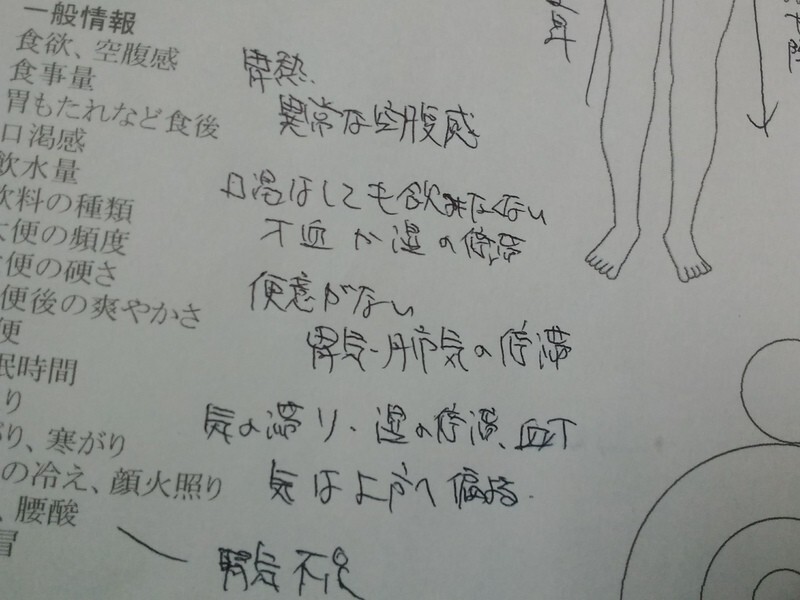 一般情報
食欲、空腹感
食事量
胃もたれなど食後
口渇感
飲水量
飲料の種類
大便の頻度
便の硬さ
便後の爽やかさ
便
眠時間
り
がり、寒がり
の冷え、顔火照り
、腰酸
冒
胃熱.
異常な空腹感
口渇はしても飲みたくない
オ血か湿の停滞
便意がない
胃気・肺気の停滞
気の滞り・湿の停滞、血オ
気は上方へ偏る.
腎気不足